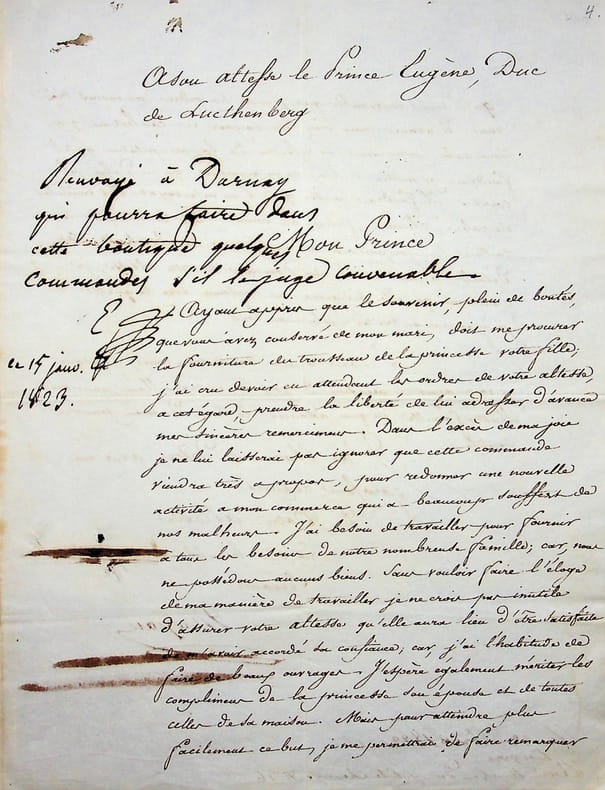 4.
A son altesse le Prince Eugène, Duc
de Lucthenberg
Renvoyé à Darnay
qui pourra faire dans
cette boutique quelques
commandes s'il le juge convenable
E
ce 15 janv.
1823.
Mon Prince
Ayant appris que le souvenir, plein de bontés,
que vous avez conservé de mon mari, doit me procurer
la fourniture du trousseau de la princesse votre fille;
j'ai cru devoir en attendant les ordres de votre altesse,
a cet égard prendre la liberté de lui adresser d'avance
mes sincères remerciemens. Dans l'excès de ma joie
je ne lui laisserai pas ignorer que cette commande
viendra très a propos, pour redonner une nouvelle
activité a mon commerce qui a beaucoup souffert de
nos malheurs. J'ai besoin de travailler pour fournir
a tous les besoins de notre nombreuse famille; car, nous
ne possédons aucuns biens. Sans vouloir faire l'éloge
de ma manière de travailler je ne crois pas inutile
d'assurer votre altesse qu'elle aura lieu d'être satisfaite
de m'avoir accordé sa confiance; car, j'ai l'habitude de
faire de beaux ouvrages. J'espère également mériter les
complimens de la princesse son épouse et de toutes
celles de sa maison. Mais pour atteindre plus
facilement ce but, je me permettrai de faire remarquer